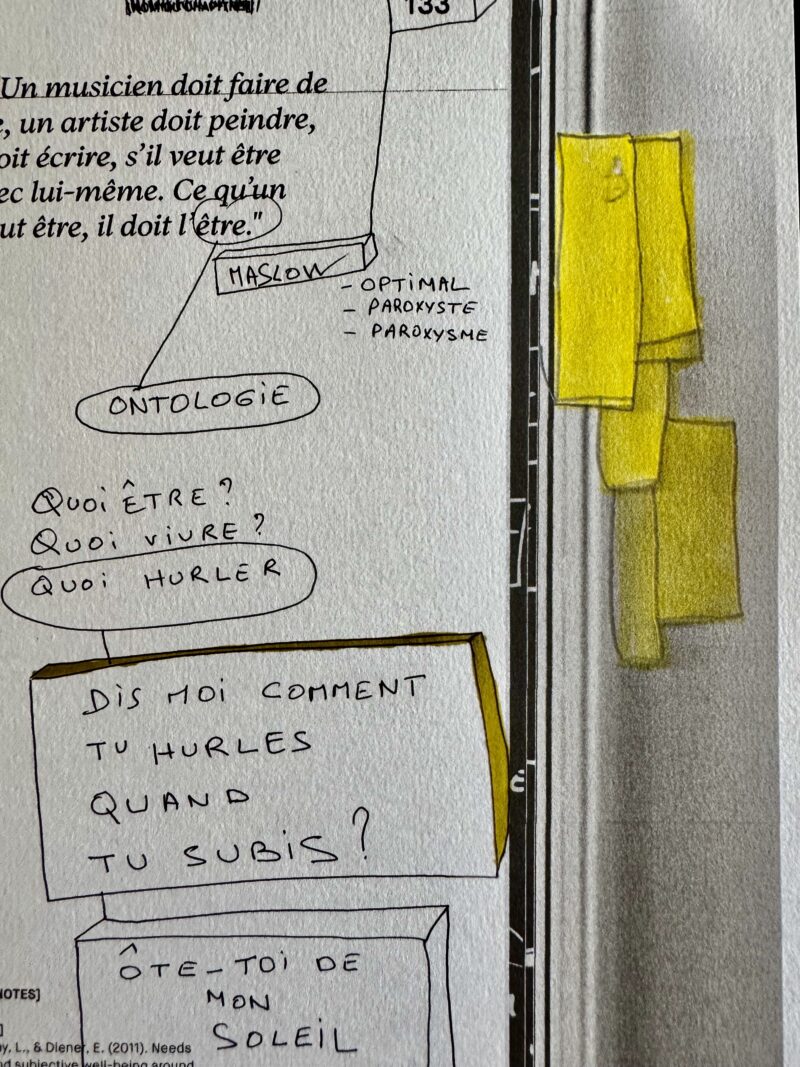 133
Un musicien doit faire de
, un artiste doit peindre,
oit écrire, s'il veut être
ec lui-même. Ce qu'un
ut être, il doit l'être."
MASLOW
- OPTIMAL
- PAROXYSTE
- PAROXYSME
ONTOLOGIE
QUOI ÊTRE ?
QUOI VIVRE ?
QUOI HURLER
DIS MOI COMMENT
TU HURLES
QUAND
TU SUBIS ?
ÔTE-TOI DE
MON
SOLEIL
NOTES]
]
y, L., & Diener, E. (2011). Needs
nd subjective well-being around